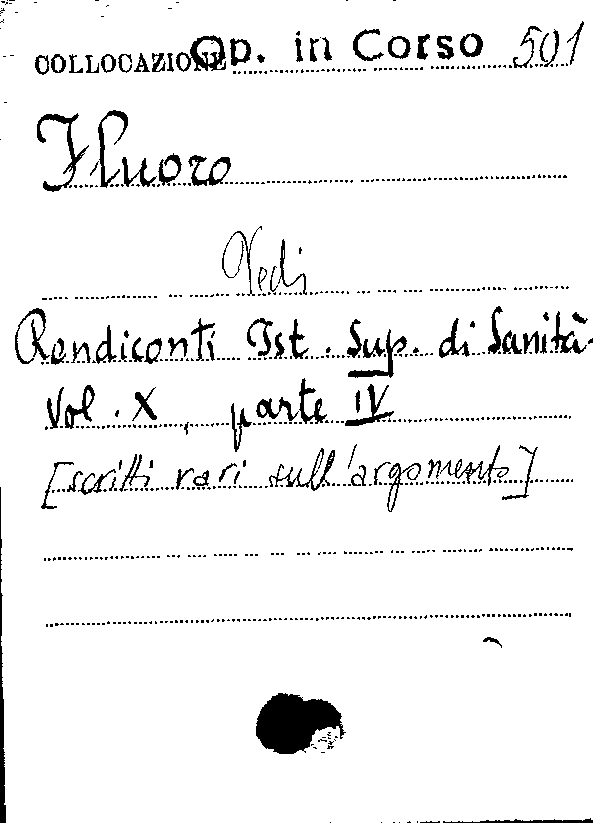 COLLOCAZIONE Op. in Corso 501
Fluoro
Vedi
Rendiconti Ist. Sup. di Sanità
Vol. X, parte IV
[scritti vari sull'argomento]